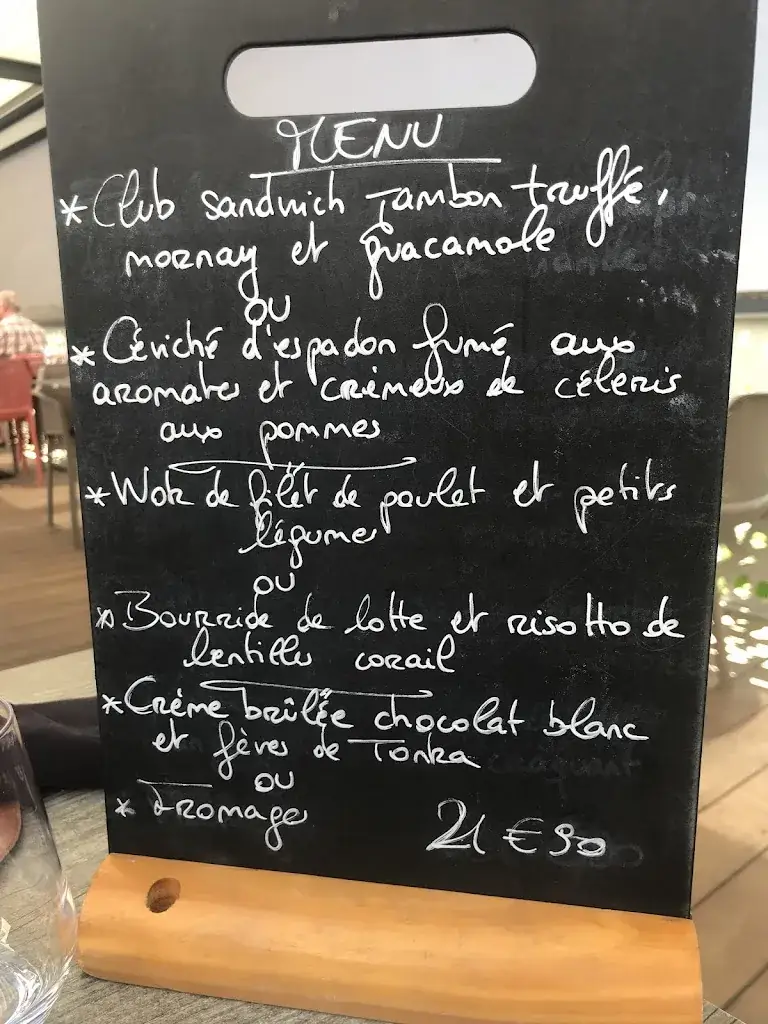 MENU
* Club sandwich Jambon truffé,
mornay et guacamole
OU
* Céviché d'espadon fumé aux
aromates et crémeux de céleris
aux pommes
* Wok de filet de poulet et petits
légumes
OU
* Bourride de lotte et risotto de
lentilles corail
* Crème brûlée chocolat blanc
et fèves de Tonka
OU
* Fromages
21 € 90